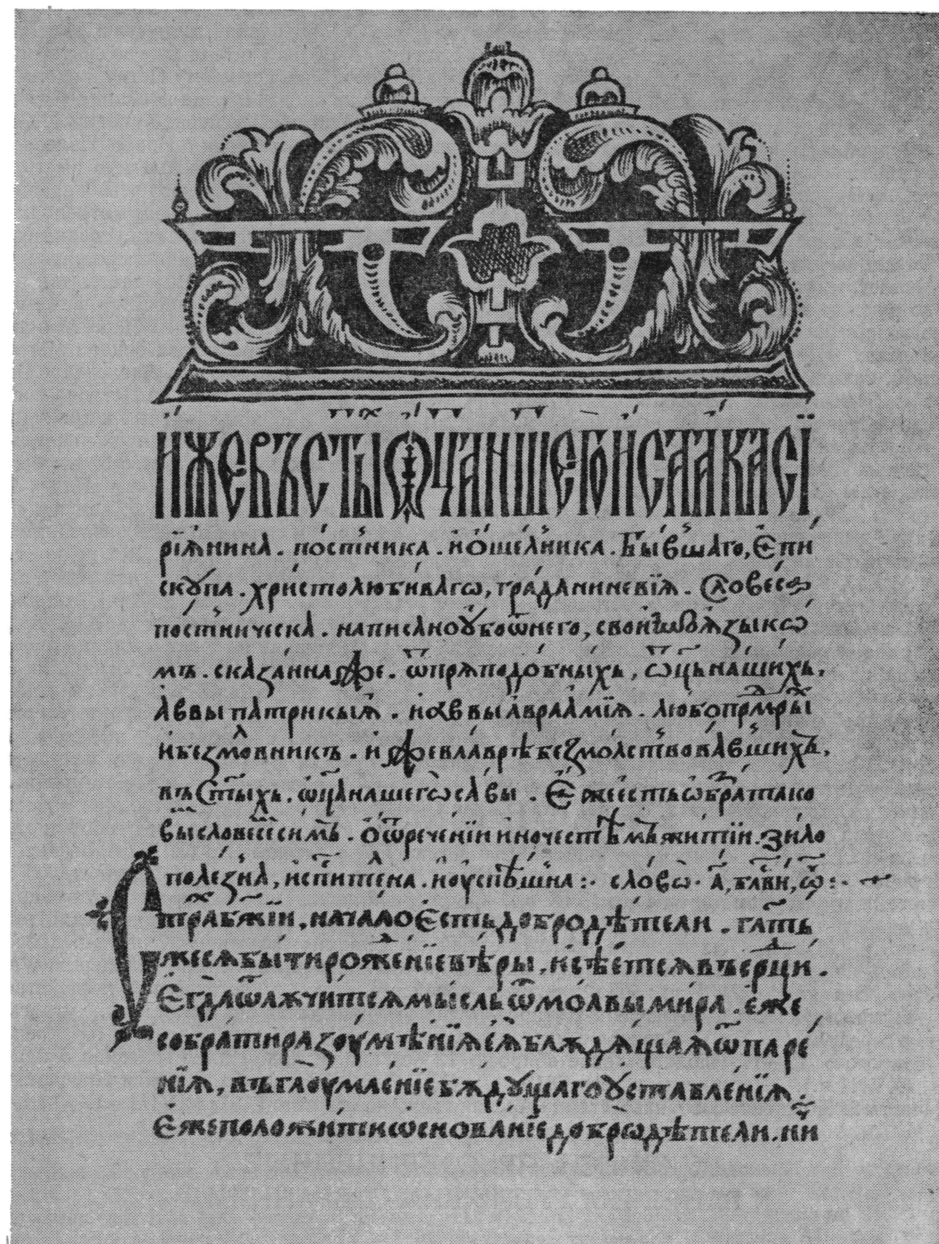 И҆́же въ ст҃ы́ ѻ҆ц҃а на́шего и҆саа́ка сі
рїѧ́нина . по́стника . и҆ ѻ҆ше́лника . бы́вшаго , є҆пи
скꙋпа . христолюби́ваго , гра́да нинеѵі́ѧ . Словеса
по́стническа . написано ᲂу҆бо ѿ него , свои́мъ ѧ҆зыко
мъ . ска́занна же . ѿ преподо́бныхъ , ѻ҆ц҃ъ на́шихъ .
а҆ввы патрикы́ѧ . и҆ а҆ввы а҆враа́мїѧ . любопрм҃ры
и҆ безмо́вникъ . и҆же в ла́врѣ безмо́лствова́вшихъ ,
въ Ст҃ыхъ . ѻ҆ц҃а нашего са́вы . Є҆́же е҆сть
вы словесе́ симъ . ѿрече́нїи и҆ и҆ночестѣмъ житїи . Ѕѣло
поле́зна , и҆ . и҆ ᲂу҆спѣ́шна : сло́во . а҃ , ѡ҆ :
Стра́х бж҃їи , нача́ло є҆́сть добродѣ́тели . гл҃етъ
же сѧ бы́ти роже́нїе вѣ́ры , и҆ сѣ́етсѧ въ ср҃дци .
Є҆гда̀ ѿлꙋчи́тсѧ мы́сль ѿ молвы ми́ра . є҆́же
собра́ти разꙋмѣ́нїѧ сѧ́ блаждѧ́щаѧ ѿ паре́
нїѧ , въ глꙋмле́нїе бꙋ́дꙋщаго ᲂу҆ставле́нїѧ
Є҆́же положи́ти ѡ҆снова́нїе добродѣ́тели . ни